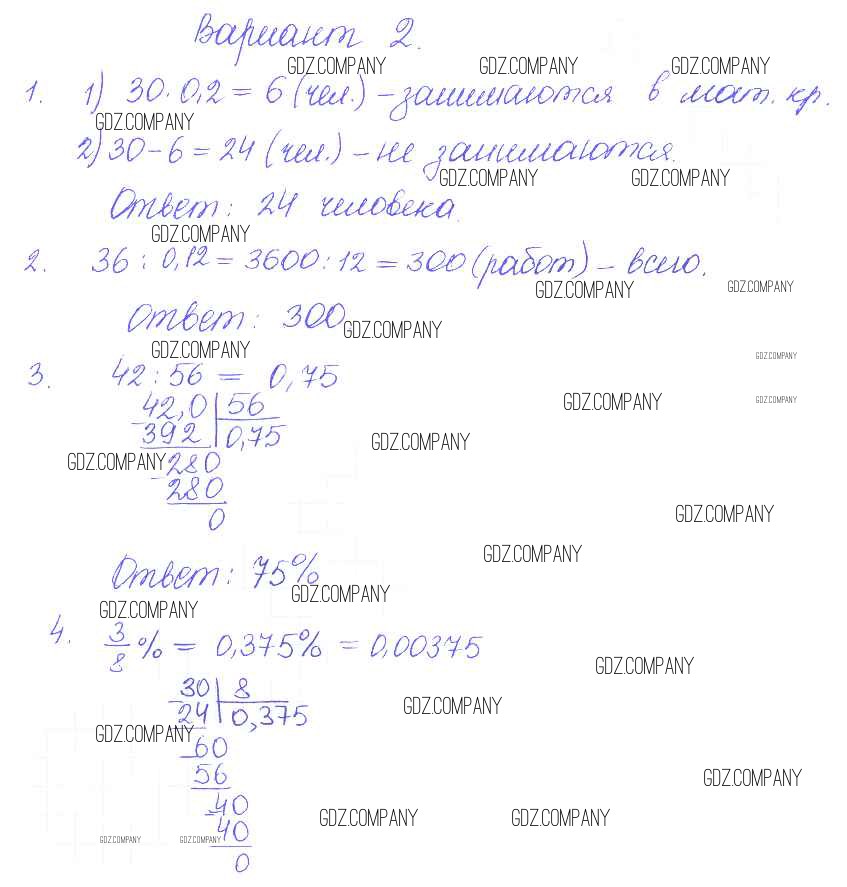 Вариант 2.
GDZ.COMPANY GDZ.COMPANY GDZ.COMPANY
1. 1) 30 · 0,2 = 6 (чел.) – занимаются в мат. кр.
GDZ.COMPANY
2) 30 – 6 = 24 (чел.) – не занимаются.
GDZ.COMPANY GDZ.COMPANY
Ответ: 24 человека.
GDZ.COMPANY
2. 36 : 0,12 = 3600 : 12 = 300 (работ) – всего.
GDZ.COMPANY GDZ.COMPANY
Ответ: 300
GDZ.COMPANY
GDZ.COMPANY GDZ.COMPANY
3. 42 : 56 = 0,75
GDZ.COMPANY GDZ.COMPANY
42,0 | 56
392 | 0,75
GDZ.COMPANY
GDZ.COMPANY
280
280
0
GDZ.COMPANY
GDZ.COMPANY
Ответ: 75%
GDZ.COMPANY
GDZ.COMPANY
4. 3/8 % = 0,375% = 0,00375
GDZ.COMPANY
30 | 8
24 | 0,375
GDZ.COMPANY
GDZ.COMPANY
60
56
GDZ.COMPANY
40
GDZ.COMPANY GDZ.COMPANY
40
GDZ.COMPANY GDZ.COMPANY
0